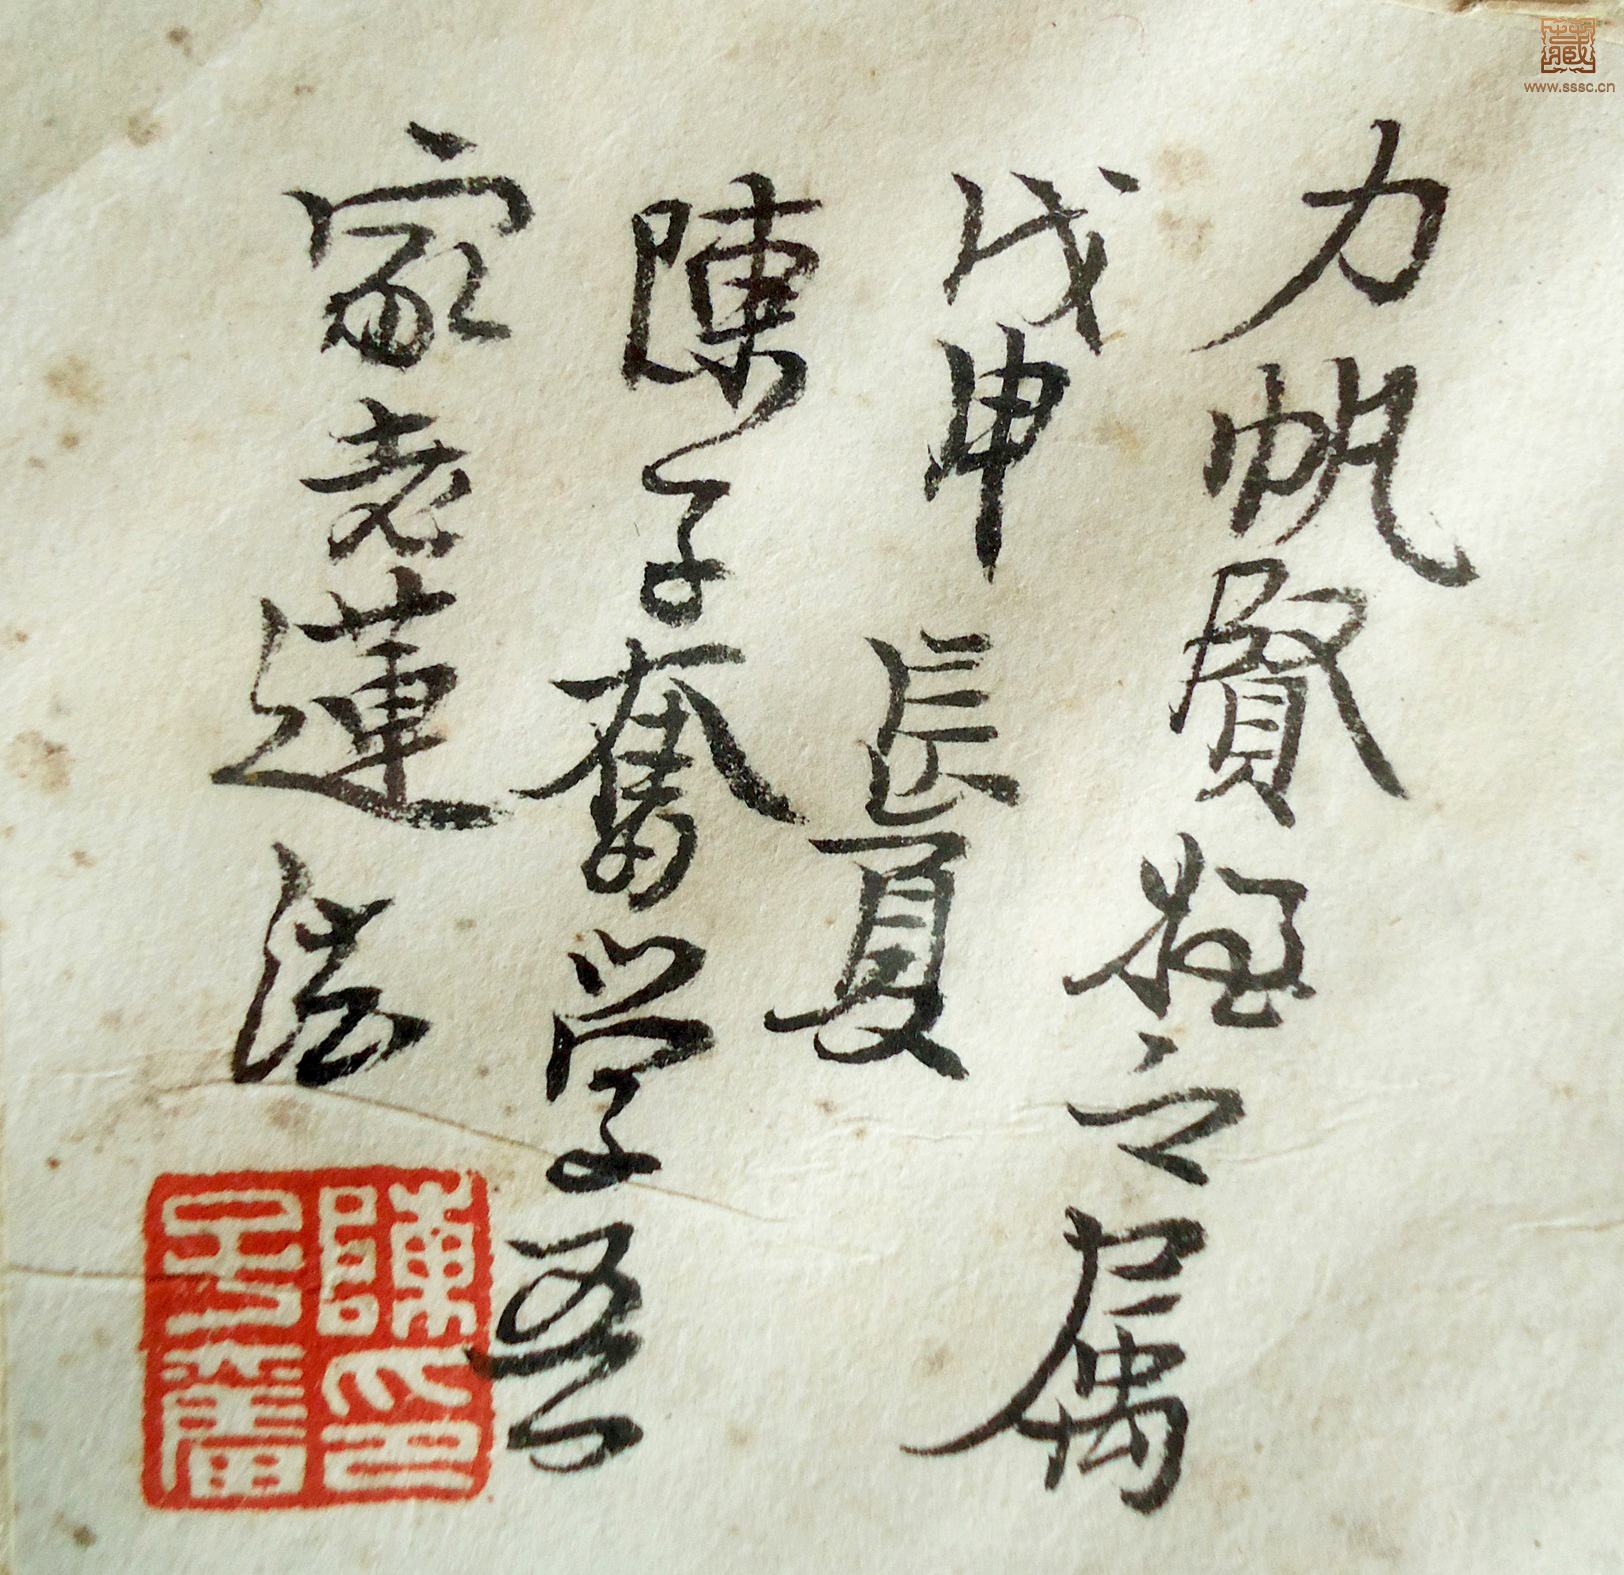 力帆賢姪之属
戊申 長夏
陳子奮学吾
家老蓮法
陳子奮印
藏
www.sssc.cn